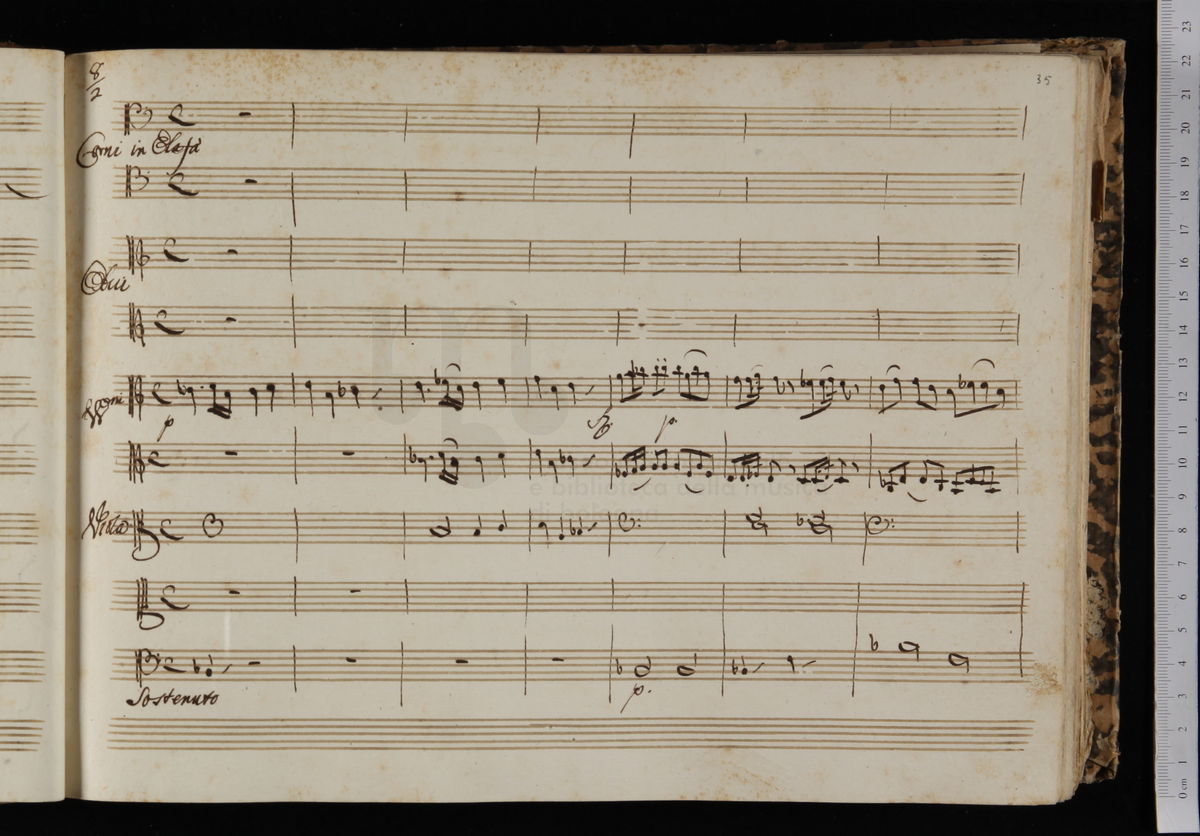 8
2
35
Corni in Elafà
Oboi
VVni
p
fp.
p.
Viola
p.
Sostenuto
e biblioteca della musica
di bologna
0 cm 1 2 3 4 5 6 7 8 9 10 11 12 13 14 15 16 17 18 19 20 21 22 23